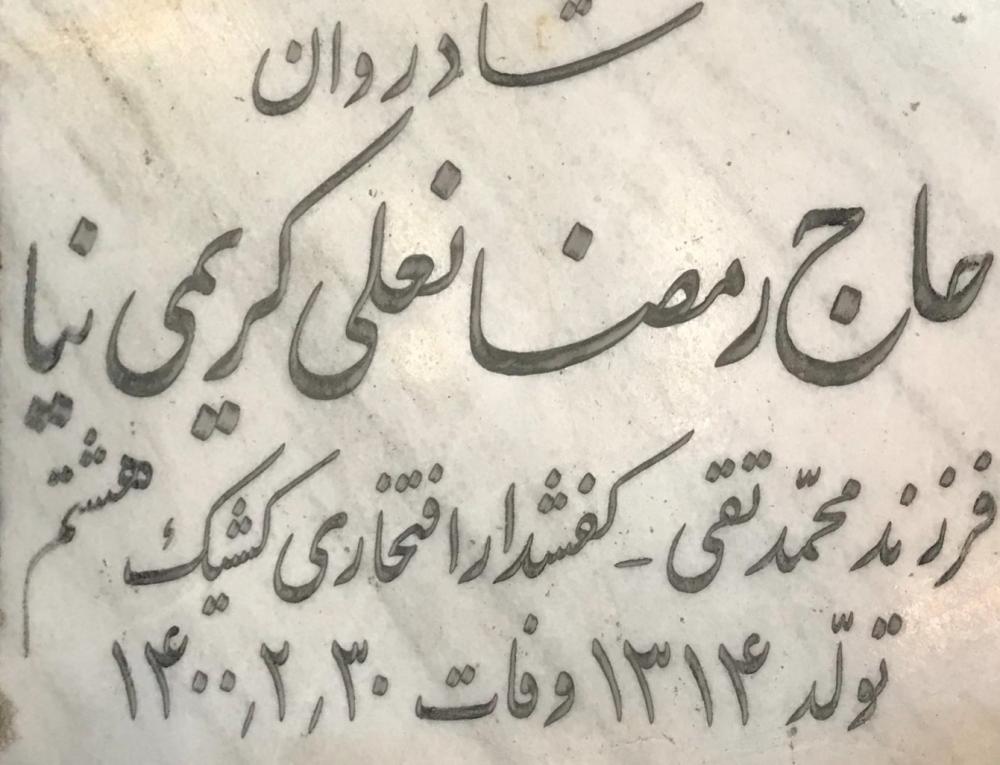 شادروان
حاج رمضانعلی کریمی نیا
فرزند محمّدتقی - کفشدار افتخاری کشیک هشتم
تولّد ۱۳۱۴ وفات ۱۴۰۰٫۲٫۳۰